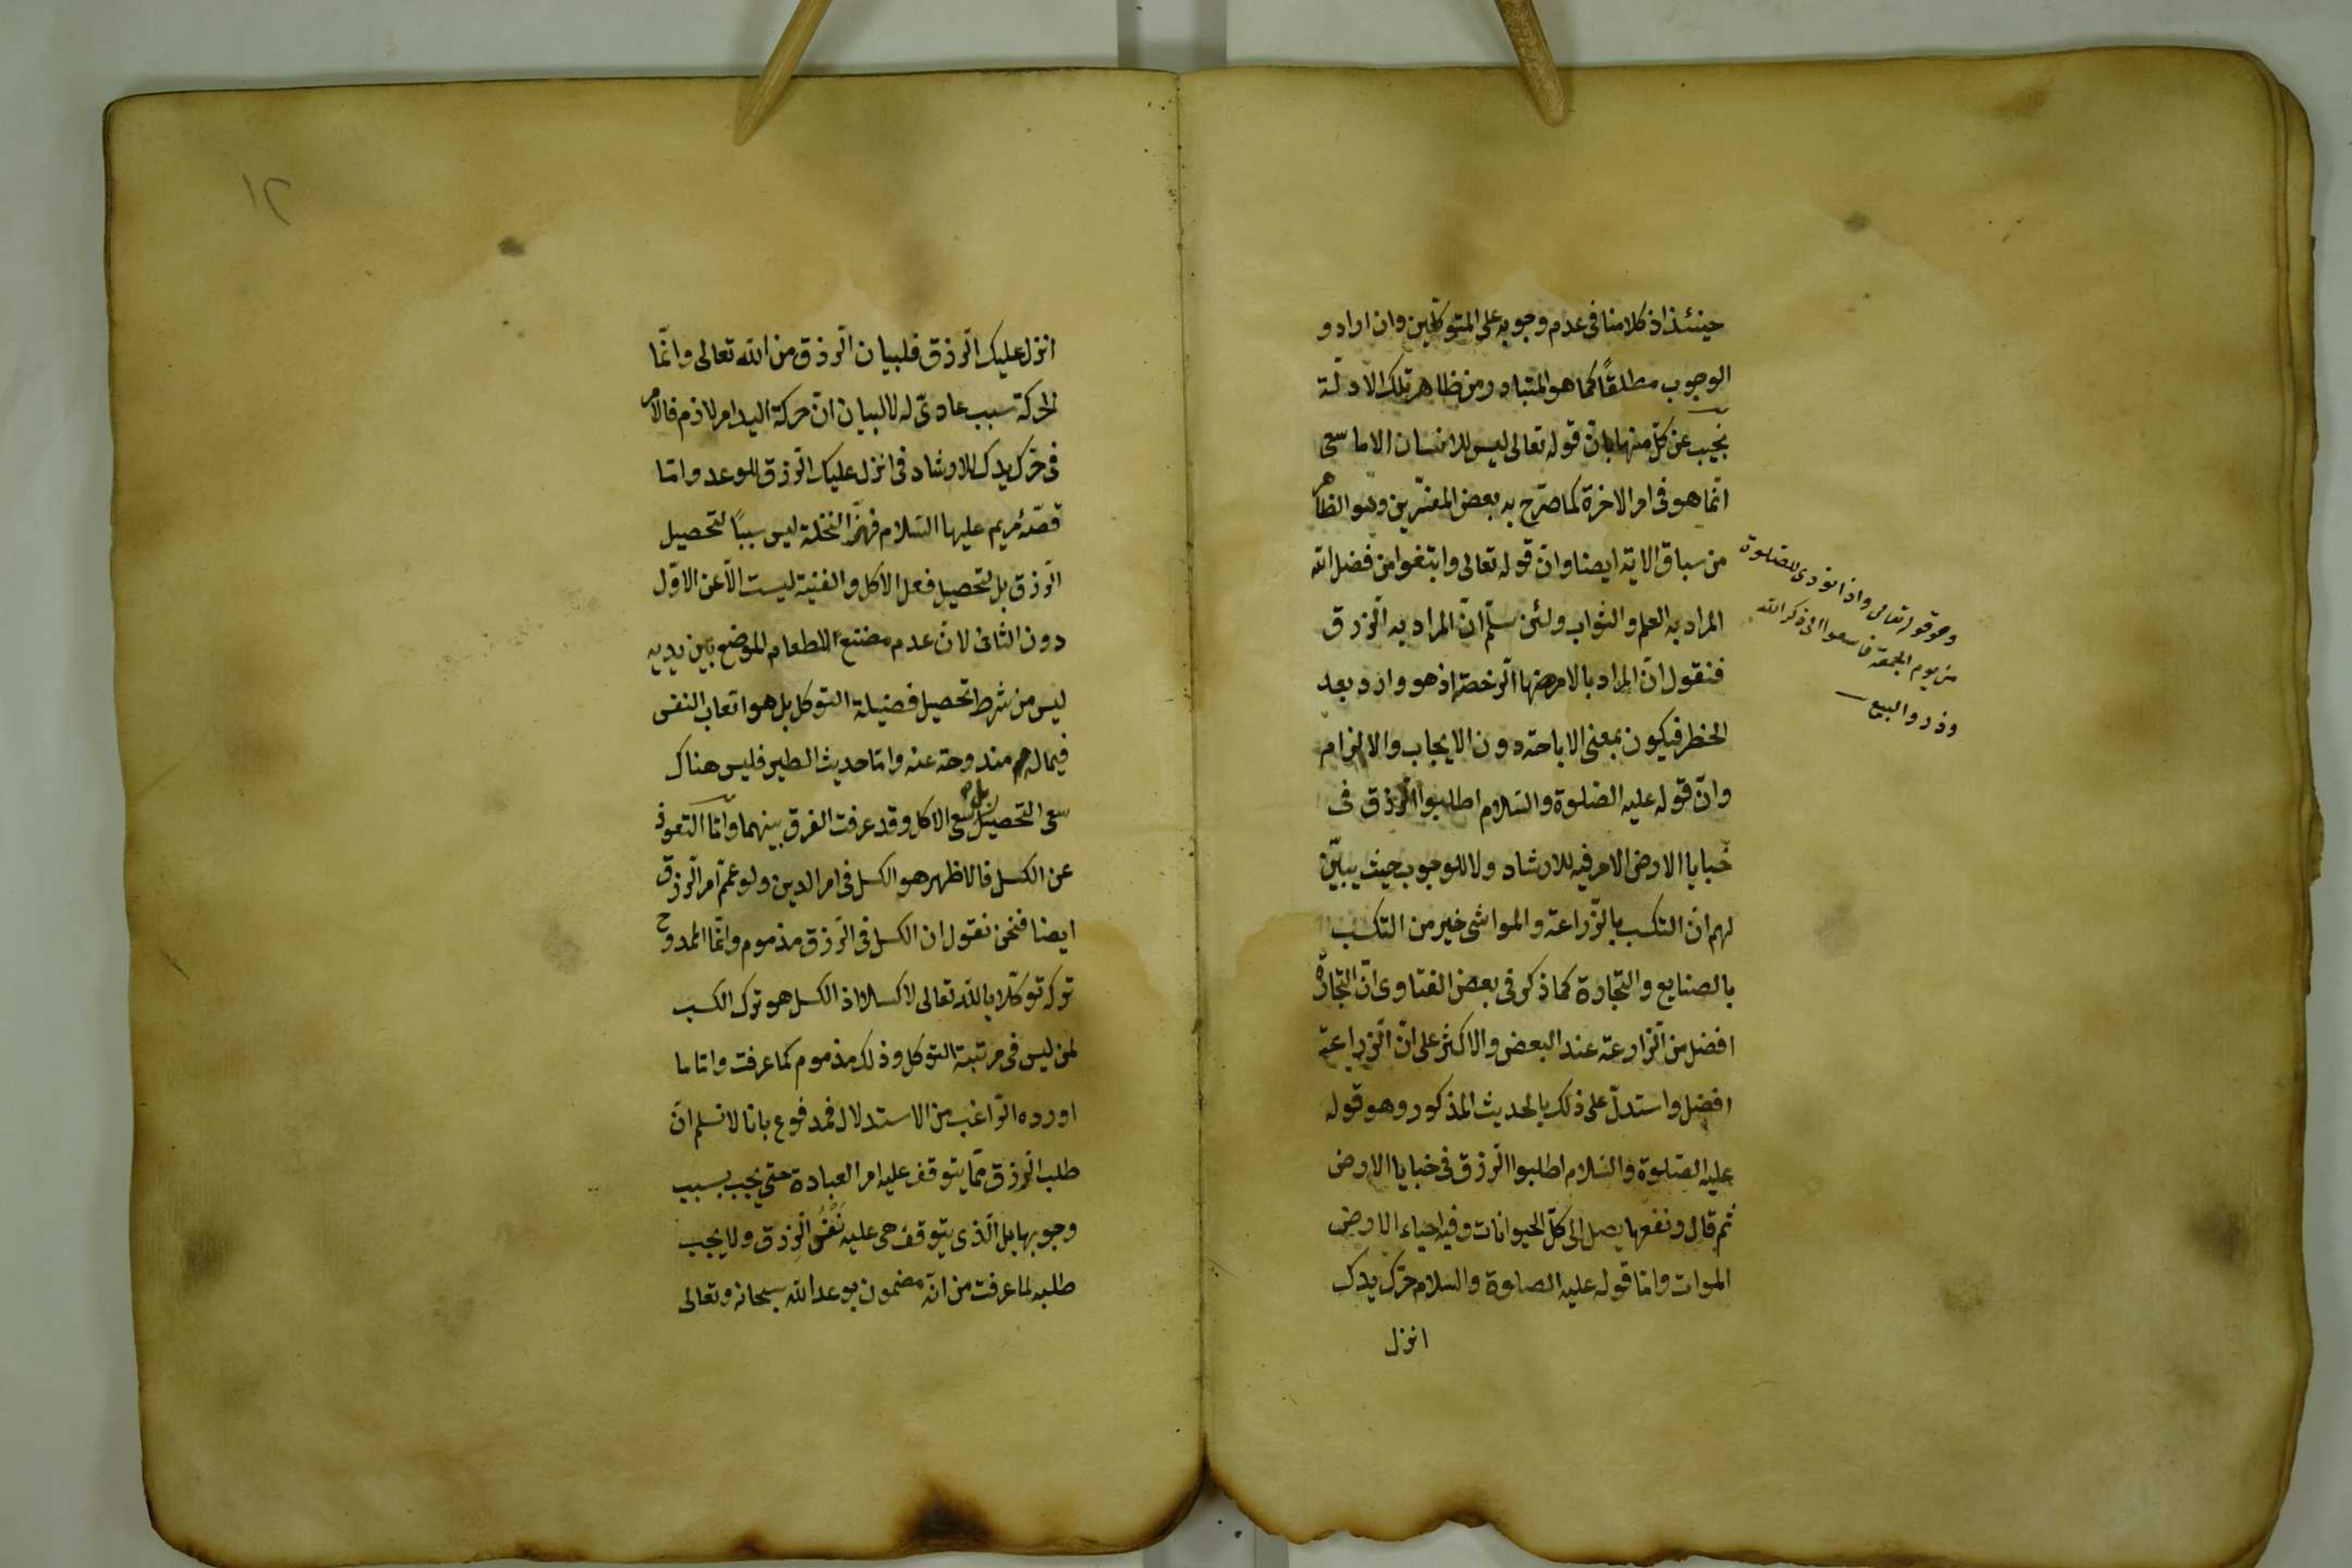 حينئذ اذ كلامنا فى عدم وجوبه على المتوكلين وان اراد و
الوجوب مطلقًا كما هو المتبادر من ظاهر تلك الادلّة
نجيب عن كلّ منها بانّ قوله تعالى ليس للانسان الا ما سعى
انّما هو فى امر الاخرة كما صرّح به بعض المفسّرين وهو الظاهر
من سياق الاية ايضا وان قوله تعالى وابتغوا من فضل الله
المراد به العلم والثواب ولئن سلّم انّ المراد به الرّزق
فنقول انّ المراد بالامر ههنا الرّخصة اذ هو وارد بعد
الحظر فيكون بمعنى الاباحة دون الايجاب والالزام
وانّ قوله عليه الصّلوة والسّلام اطلبوا الرّزق فى
خبايا الارض الامر فيه للارشاد ولا للوجوب حيث يبيّن
لهم انّ التكسب بالزّراعة والمواشى خير من التكسب
بالصنايع والتّجارة كما ذكر فى بعض الفتاوى انّ التّجارة
افضل من الزّارعة عند البعض والاكثر على انّ الزّراعة
افضل واستدلّ على ذلك بالحديث المذكور وهو قوله
عليه الصّلوة والسّلام اطلبوا الرّزق فى خبايا الارض
ثم قال ونفعها يصل الى كلّ الحيوانات وفيه احياء الارض
الموات وامّا قوله عليه الصلوة والسلام حرّك يدك
انزل
وهو قوله تعالى واذا نودى للصّلوة
من يوم الجمعة فاسعوا الى ذكر الله
وذروا البيع
١٢
انزل عليك الرّزق فلبيان الرّزق من الله تعالى وانّما
الحركة سبب عادىّ له لا لبيان انّ حركة اليد امر لازم فالامر
فى حرّك يدك للارشاد فى انزل عليك الرّزق للوعد وامّا
قصّة مريم عليها السّلام فهزّ النخلة ليس سببًا لتحصيل
الرّزق بل لتحصيل فعل الاكل والغنية ليست الّا عن الاوّل
دون الثانى لانّ عدم مضغ الطعام الموضع بين يديه
ليس من شرط تحصيل فضيلة التوكل بل هو اتعاب النفس
فيما له مندوحة عنه وامّا حديث الطير فليس هناك
سعى التحصيل بل سعى الاكل وقد عرفت الفرق بينهما وامّا التعوذ
عن الكسل فالاظهر هو الكسل فى امر الدين ولو عمّم امر الرّزق
ايضا فنحن نقول ان الكسل فى الرّزق مذموم وانّما الممدوح
تركه توكّلا بالله تعالى لا كسلا اذ الكسل هو ترك الكسب
لمن ليس فى مرتبة التوكل وذلك مذموم كما عرفت وامّا ما
اورده الرّاغب من الاستدلال فمدفوع بانا لا نسلم انّ
طلب الرّزق ممّا يتوقف عليه امر العبادة حتى يجب بسبب
وجوبها بل الّذى يتوقف هى عليه نَفْسُ الرّزق ولا يجب
طلبه لما عرفت من انّه مضمون بوعد الله سبحانه وتعالى